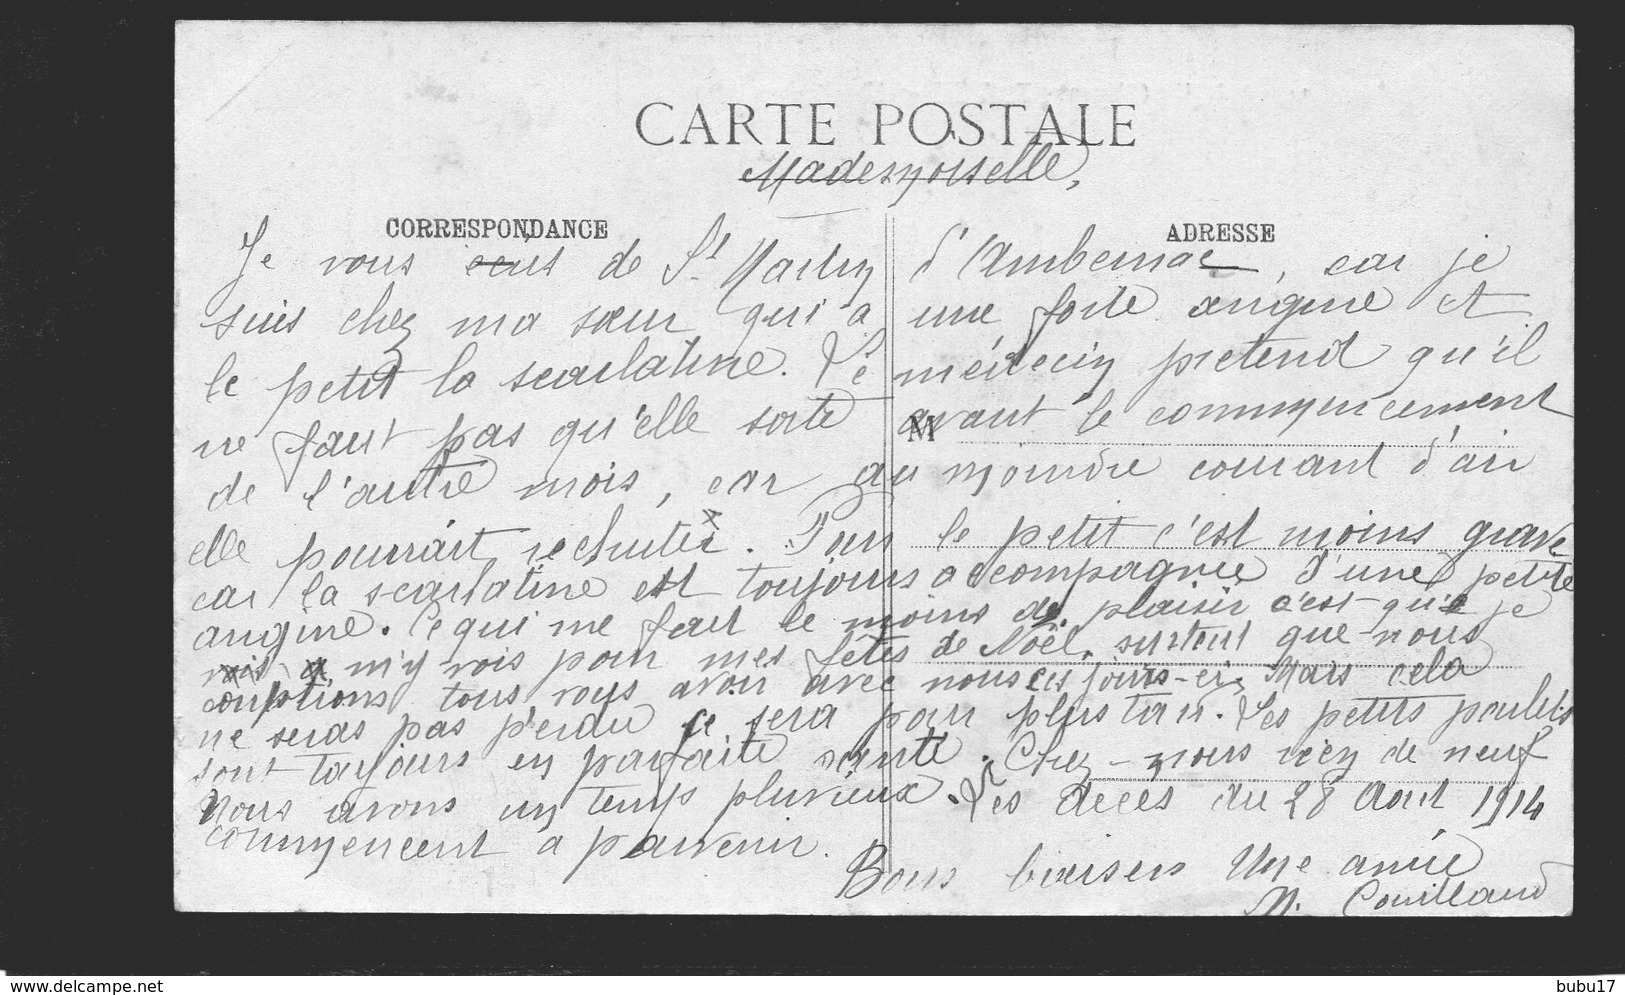 CARTE POSTALE
Mademoiselle,
CORRESPONDANCE
ADRESSE
Je vous écris de St Martin d'Ambernac, car je
suis chez ma sœur qui a une forte angine et
le petit la scarlatine. Le médecin pretend qu'il
ne faut pas qu'elle sorte avant le commencement
M
de l'autre mois, car au moindre courant d'air
elle pourrait rechuter. Pour le petit c'est moins grave
car la scarlatine est toujours accompagnée d'une petite
angine. Ce qui me fait le moins de plaisir c'est qu'e je
m'y vois pour mes fêtes de Noël, surtout que nous
comptions tous vous avoir avec nous ces jours-ci. Mais cela
ne seras pas perdu ce sera pour plus tar. Les petits poulets
sont toujours en parfaite santé. Chez-nous rien de neuf
Nous avons un temp pluvieux. Les décès du 28 Aout 1914
commencent à parvenir.
Bons baisers Une amie
M. Couillaud
www.delcampe.net
bubu17